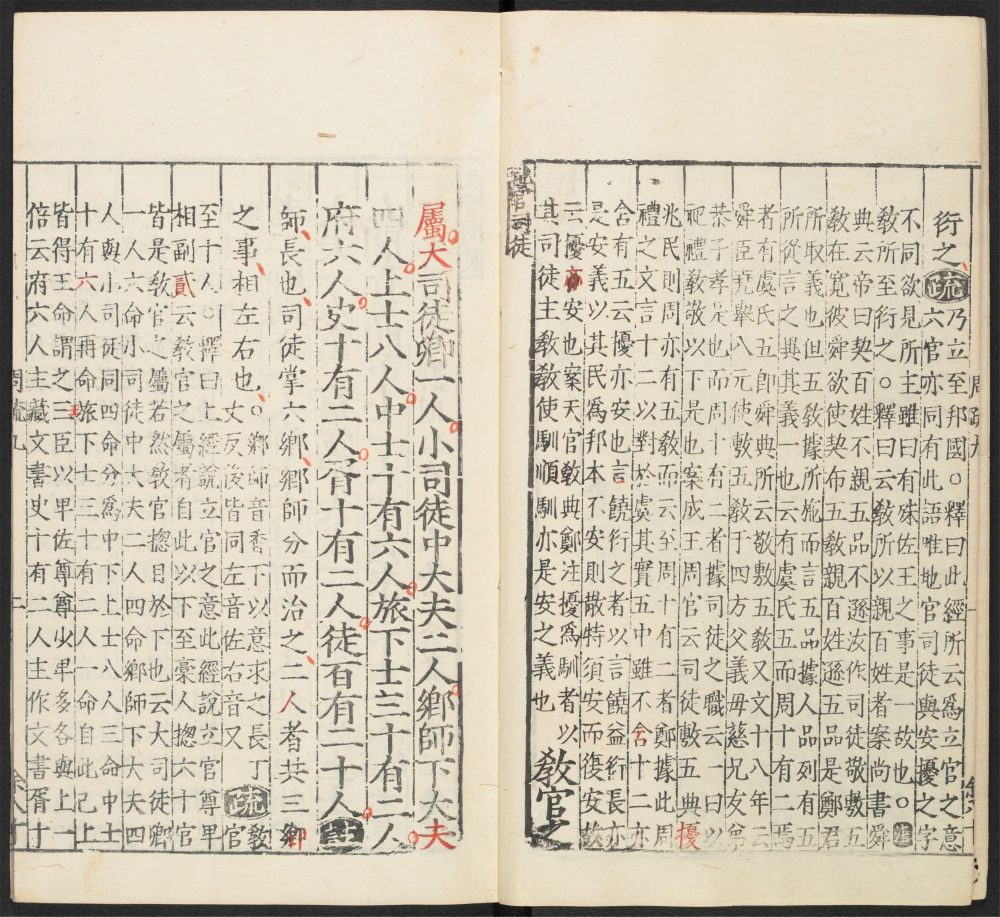 衍之疏乃立至邦國○釋曰此經所云爲立官之意
六官亦同有此語唯地官司徒與安擾之字
不同欲見所主雖曰有殊佐王之事是一故也○注
敎所至衍之○釋曰云敎所以親百姓者案尚書舜
典云帝曰契百姓不親五品不遜汝作司徒敬敷五
敎在寬彼舜欲使契布五敎親百姓遜五品是鄭君
所取義也但五敎據所施而言五品據人品列有五
所從言之異其義一也云有虞氏五而周十有二焉
者有虞氏五卽舜典所云敬敷五敎又文十八年云
舜臣堯舉八元使敷五敎于四方父義母慈兄友弟
恭子孝是也而周十有二者據司徒之職云一曰以
祀禮敎敬以下是也案成王周官云司徒敷五典擾
兆民則周亦有五敎而云至周十有二者鄭據此周
禮之文言十二以對於虞其實五中雖不含十二亦
含有五云擾亦安也言饒衍之者以言饒益衍長亦
是安義以其民爲邦本不安則散特須安而復安故
云擾亦安也案天官敎典鄭注擾爲馴者以
其司徒主敎敎使馴順馴亦是安之義也敎官之
屬大司徒卿一人小司徒中大夫二人鄉師下大夫
四人上士八人中士十有六人旅下士三十有二人
府六人史十有二人胥十有二人徒百有二十人注
師長也司徒掌六鄉鄉師分而治之二人者共三鄉
之事相左右也○鄉師音香下以意求之長丁
丈反後皆同左音佐右音又疏敎官
至十人○釋曰上經說立官之意此經說立官尊卑
相副貳云敎官之屬者自此以下至槀人揔六十官
皆是敎官之屬若然敎官揔目於下也云大司徒卿
一人六命小司徒中大夫二人四命鄉師下大夫四
人與小司徒同四命分爲中下上士八人三命中士
十有六人再命旅下士三十有二人一命自此已上
皆得王命謂之王臣以卑佐尊尊少卑多各與上一
倍云府六人主藏文書史十有二人主作文書胥十